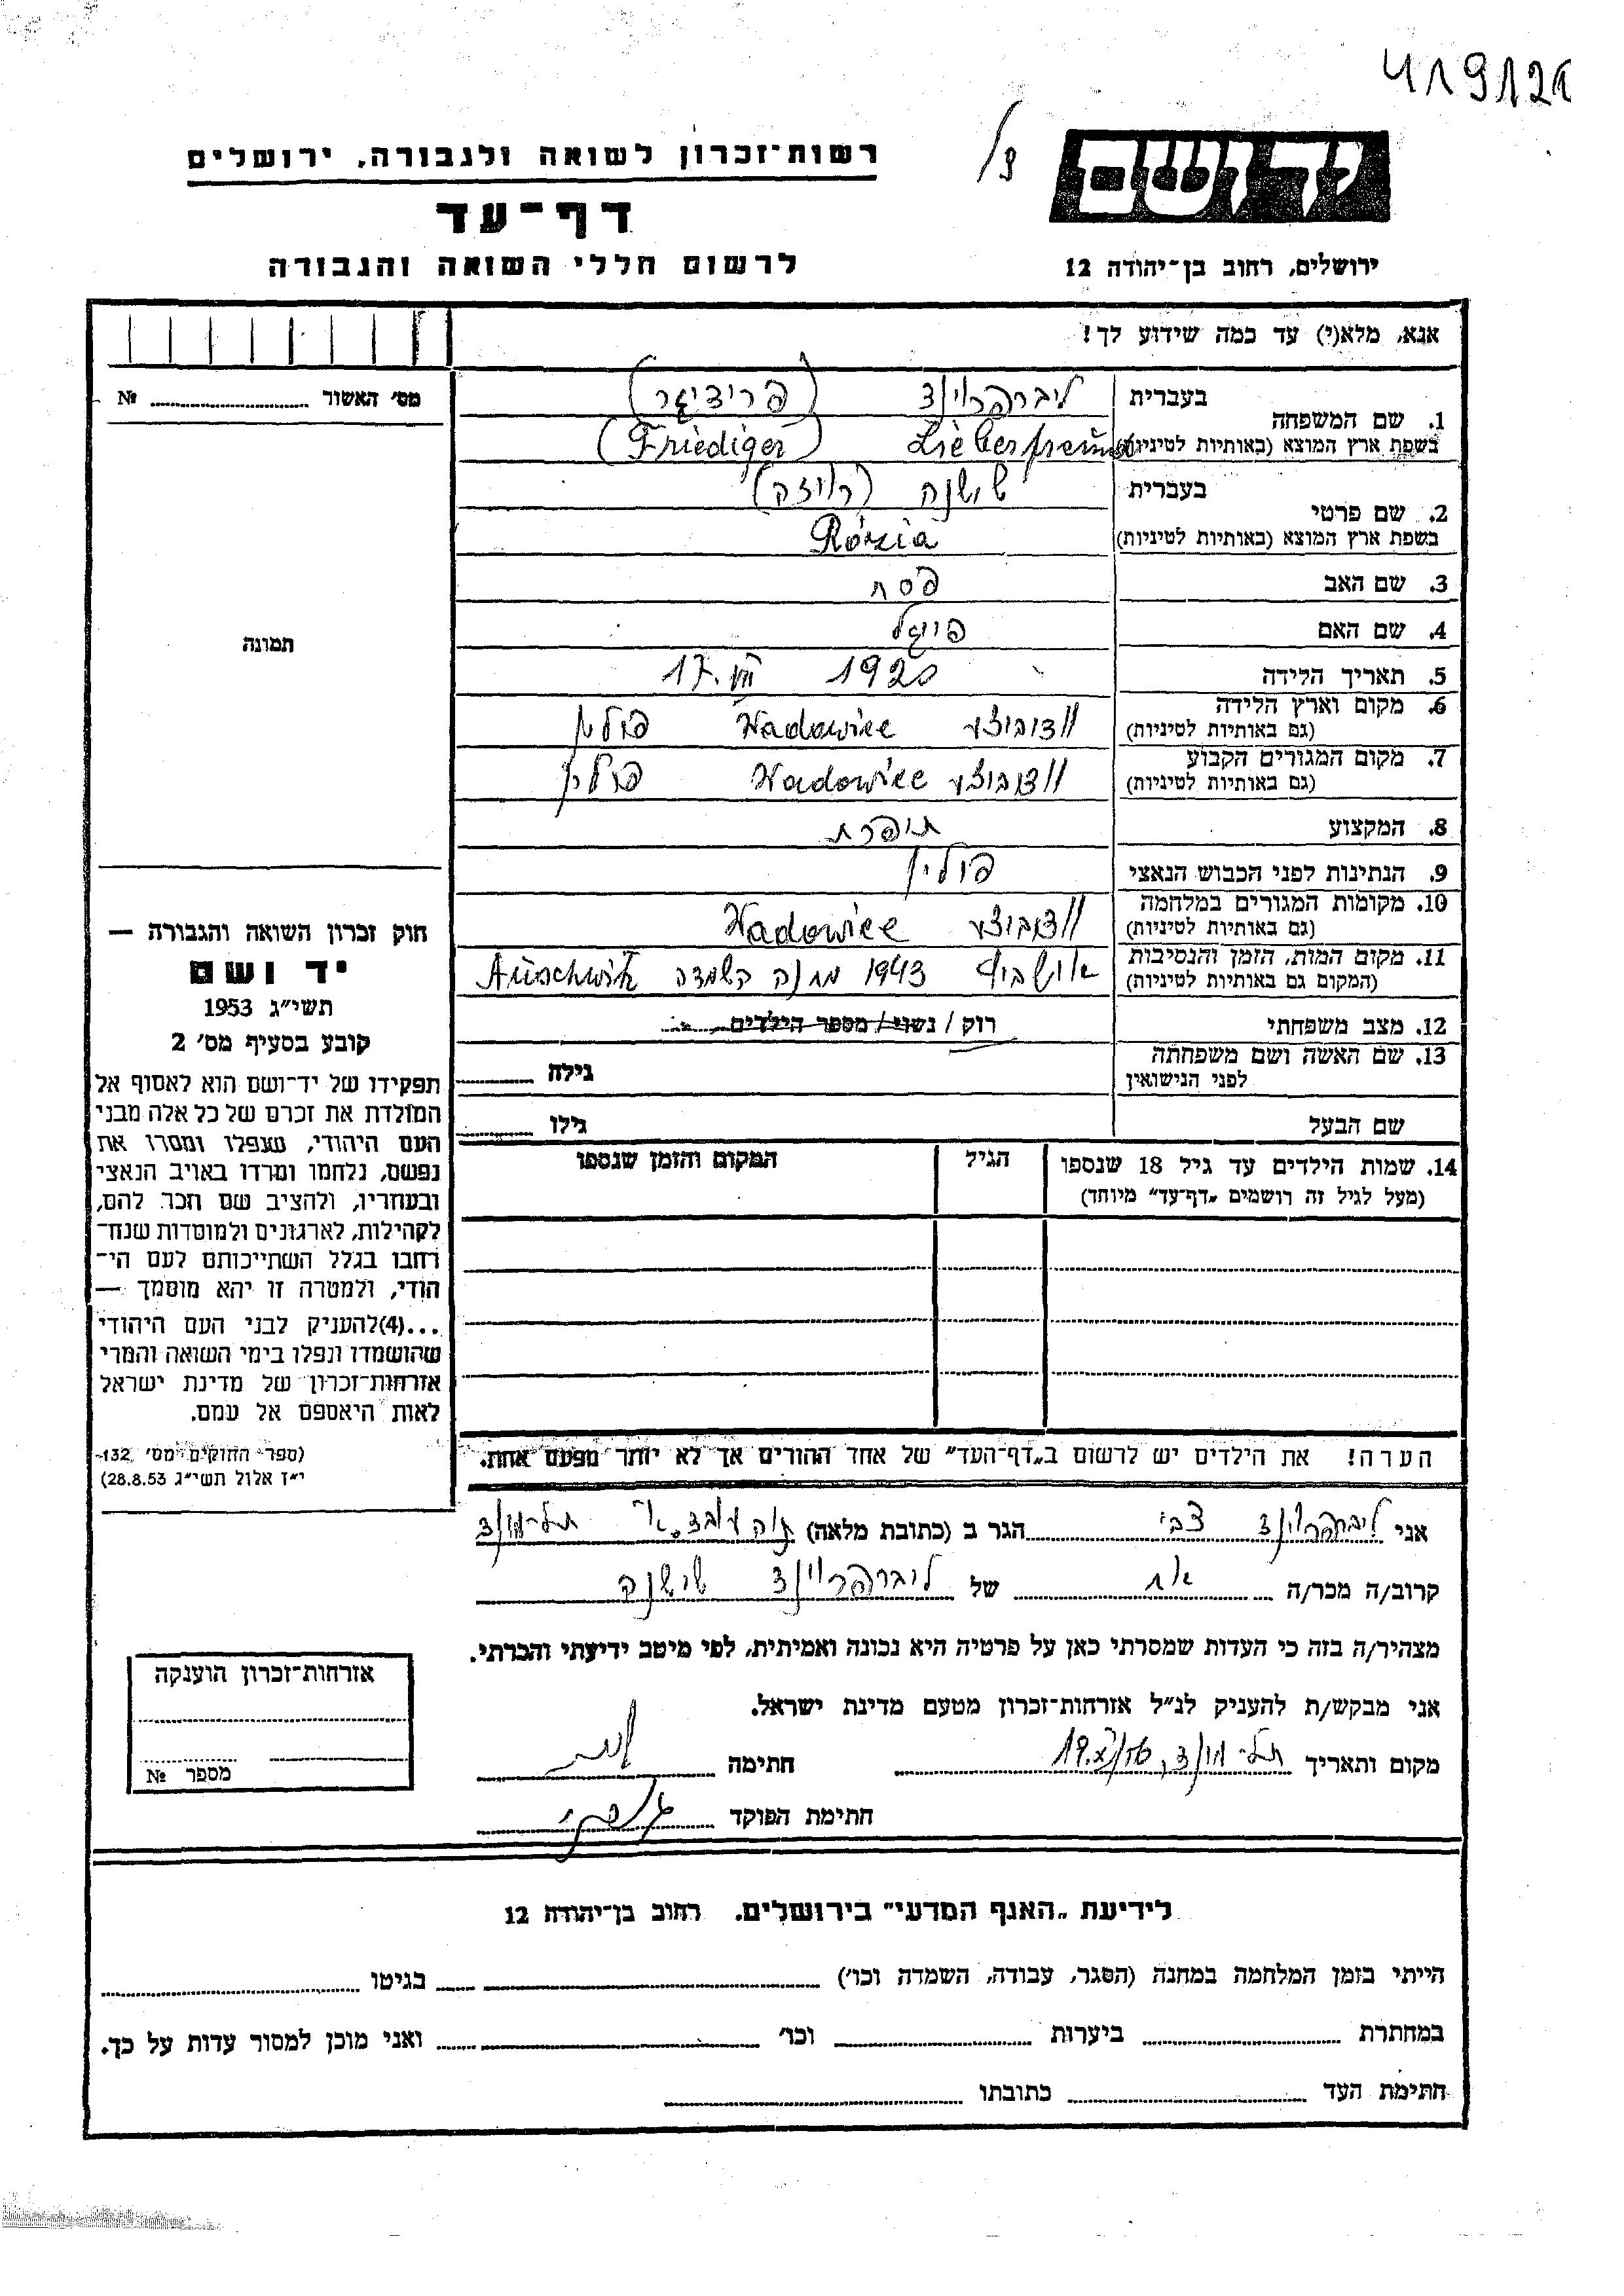 419121
יד ושם
רשות־זכרון לשואה ולגבורה, ירושלים
דף־עד
ירושלים, רחוב בן־יהודה 12
לרשום חללי השואה והגבורה
אנא, מלא(י) עד כמה שידוע לך!
מס' האשור ........ №
תמונה
1. שם המשפחה בעברית ליברפרוינד (פרידיגר)
בשפת ארץ המוצא (באותיות לטיניות) Lieberfreund (Friediger)
2. שם פרטי בעברית שושנה (רוזה)
בשפת ארץ המוצא (באותיות לטיניות) Rózia
3. שם האב פסח
4. שם האם פייגל
5. תאריך הלידה 1920 17.VII
6. מקום וארץ הלידה וודוביצע Wadowice פולין
(גם באותיות לטיניות)
7. מקום המגורים הקבוע וודוביצע Wadowice פולין
(גם באותיות לטיניות)
8. המקצוע תופרת
9. הנתינות לפני הכבוש הנאצי פולין
10. מקומות המגורים במלחמה וודוביצע Wadowice
(גם באותיות לטיניות)
11. מקום המות, הזמן והנסיבות אושביץ 1943 מחנה השמדה Auschwitz
(המקום גם באותיות לטיניות)
12. מצב משפחתי רוק / נשוי / מספר הילדים
13. שם האשה ושם משפחתה גילה
לפני הנישואין
שם הבעל גילו
14. שמות הילדים עד גיל 18 שנספו הגיל המקום והזמן שנספו
(מעל לגיל זה רושמים "דף־עד" מיוחד)
הערה! את הילדים יש לרשום ב"דף־העד" של אחד ההורים אך לא יותר מפעם אחת.
חוק זכרון השואה והגבורה —
יד ושם
תשי"ג 1953
קובע בסעיף מס' 2
תפקידו של יד־ושם הוא לאסוף אל
המולדת את זכרם של כל אלה מבני
העם היהודי, שנפלו ומסרו את
נפשם, נלחמו ומרדו באויב הנאצי
ובעוזריו, ולהציב שם וזכר להם,
לקהילות, לארגונים ולמוסדות שנח־
רבו בגלל השתייכותם לעם הי־
הודי, ולמטרה זו יהא מוסמך —
...(4)להעניק לבני העם היהודי
שהושמדו ונפלו בימי השואה והמרי
אזרחות־זכרון של מדינת ישראל
לאות היאספם אל עמם.
(ספר החוקים מס' 132,
י"ז אלול תשי"ג 28.8.53)
אני ליברפרוינד צבי הגר ב (כתובת מלאה) תל־מונד
קרוב/ה מכר/ה אח של ליברפרוינד שושנה
מצהיר/ה בזה כי העדות שמסרתי כאן על פרטיה היא נכונה ואמיתית, לפי מיטב ידיעתי והכרתי.
אני מבקש/ת להעניק לנ"ל אזרחות־זכרון מטעם מדינת ישראל.
מקום ותאריך תל־מונד, חתימה
חתימת הפוקד
אזרחות־זכרון הוענקה
מספר №
לידיעת "האגף המדעי" בירושלים. רחוב בן־יהודה 12
הייתי בזמן המלחמה במחנה (הסגר, עבודה, השמדה וכו') בגיטו
במחתרת ביערות וכו' ואני מוכן למסור עדות על כך.
חתימת העד כתובתו